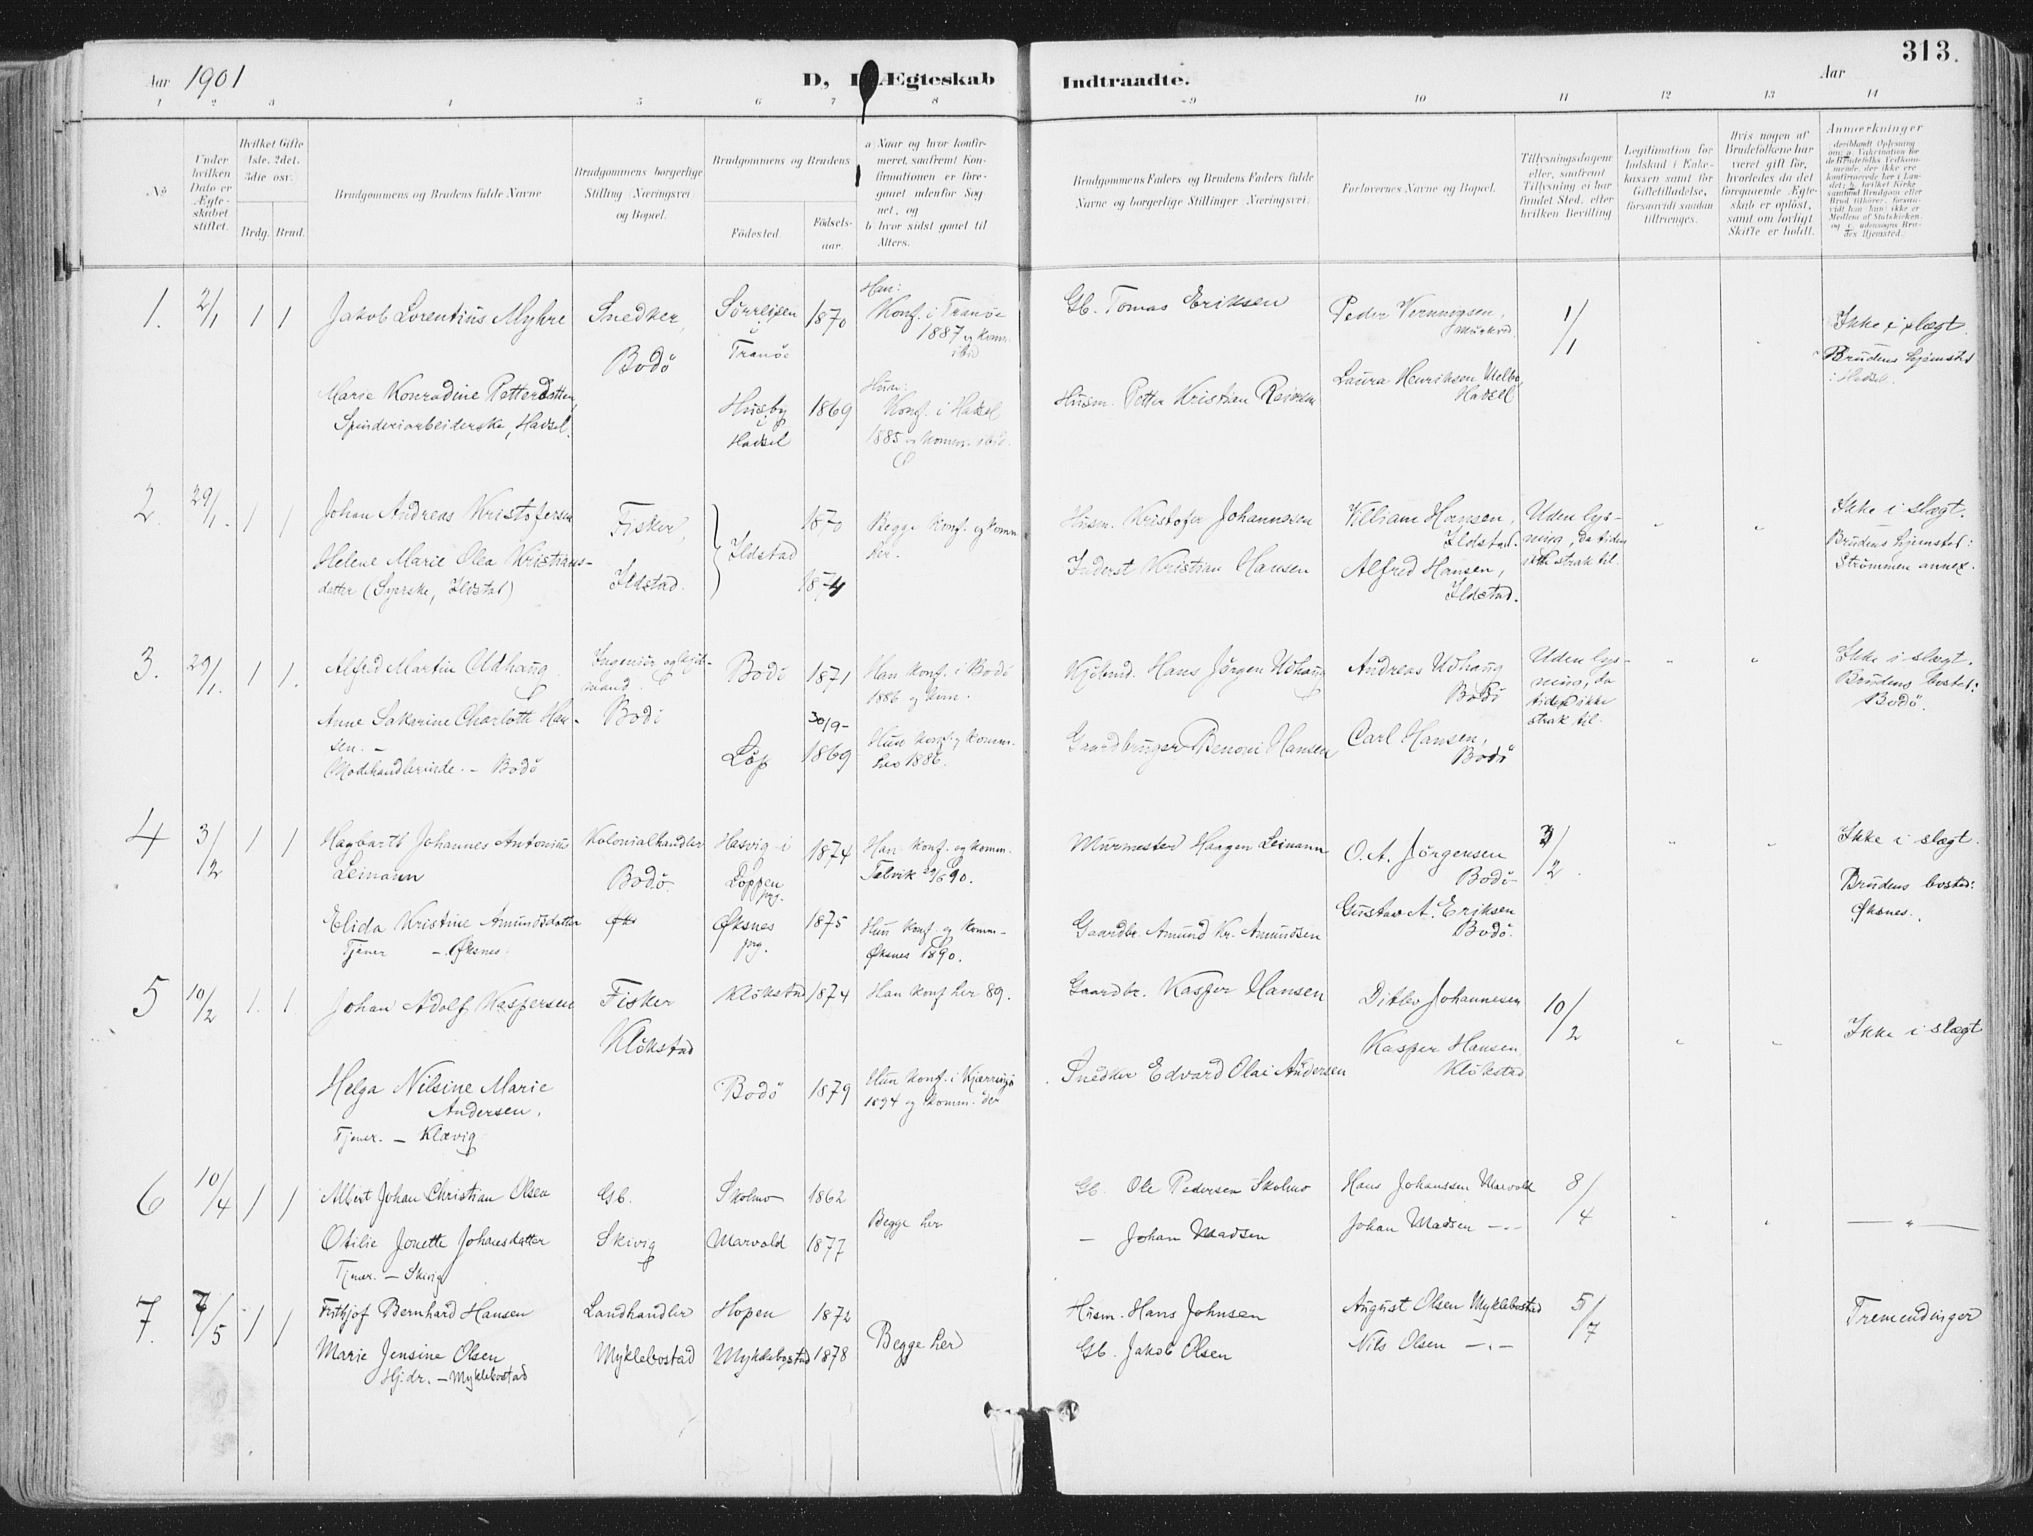 313.
Aar 1901
D, I Ægteskab
Indtraadte.
Aar
1 2 3 4 5 6 7 8 9 10 11 12 13 14
No
Under hvilken Dato er Ægteskabet stiftet.
Hvilket Gifte 1ste, 2det, 3die osv.
Brdg. Brud.
Brudgommens og Brudens fulde Navne
Brudgommens borgerlige Stilling (Næringsvei) og Bopæl.
Brudgommens og Brudens
Fødested.
Fødsels-aar.
a Naar og hvor konfirmeret, saafremt Konfirmationen er foregaaet udenfor Sognet, og
b hvor sidst gaaet til Alters.
Brudgommens Faders og Brudens Faders fulde Navne og borgerlige Stillinger (Næringsvei).
Forlovernes Navne og Bopæl.
Tillysningsdagene eller, saafremt Tillysning ei har fundet Sted, efter hvilken Bevilling
Legitimation for Indskud i Enkekassen samt for Giftetilladelse, forsaavidt saadan tiltrænges.
Hvis nogen af Brudefolkene har været gift før, hvorledes da det foregaaende Ægteskab er opløst, samt om lovligt Skifte er holdt.
Anmærkninger
1. 2/1 1 1 Jakob Lorentius Myhre
Snedker, Bodö
Sörreisen i Tranöe
1870
Han: Konf. i Tranöe 1887 og komm. ibid
Gb. Tomas Eriksen
Peder
1/1
Ikke i slægt.
Brudens hjemsted i Hadsel.
Marie Konradine Petterdatter,
Spinderiarbeiderske, Hadsel.
Husby i Hadsel
1869
Hun: Konf. i Hadsel 1885 og komm. ibid.
Husm. Petter Kristian
Laura Henriksen, Melbo, Hadsel
2. 29/1. 1 1 Johan Andreas Kristofersen
Fisker, Ildstad.
Ildstad
1870
Begge konf. og komm. her.
Husm. Kristofer Johannesen
Villiam Hansen, Ildstad.
Uden lysning, da tiden ikke strak til.
Ikke i slægt.
Brudens hjemsted: Strømmen annex.
Helene Marie Olea Kristiansdatter (Syerske, Ildstad)
1874
Inderst Kristian Hansen
Alfred Hansen, Ildstad.
3. 29/1. 1 1. Alfred Martin Udhaug
Ingeniör og kjöbmand. Bodö
Bodö
1871
Han konf. i Bodö 1886 og kom.
Kjöbmd. Hans Jörgen Udhaug
Andreas Udhaug Bodö
Uden lysning, da tiden ikke strak til.
Ikke i slægt.
Brudens bosted: Bodö.
Anne Sakarine Charlotte Hansen. -
Modehandlerinde. - Bodö
Löp
30/9- 1869
Hun konf. og komm. her 1886.
Gaardbruger Benoni Hansen
Carl Hansen, Bodö
4 3/2 1 1 Hagbarth Johannes Antonius Leimann
Kolonialhandler Bodö
Hasvig i Loppen prg.
1874
Han konf. og komm. Talvik 90.
Murmester Haagen Leimann
O. A. Jörgensen Bodö
3/2.
Ikke i slægt.
Brudens bosted: Øksnes.
Elida Kristine Amundsdatter
Tjener - Øksnes.
Øksnes prg.
1875
Hun konf. og komm. Øksnes 1890.
Gaardbr. Amund Kr. Amundsen
Gustav A. Eriksen Bodö.
5 10/2 1. 1. Johan Adolf Kaspersen
Fisker Klökstad
Klökstad
1874
Han konf her 89.
Gaardbr. Kasper Hansen
Ditlev Johannesen
10/2
Ikke i slægt
Helga Nilsine Marie Andersen,
Tjener. - Klævig
Bodö
1879
Hun konf. i Kjærringö 1894 og komm. der
Snedker Edvard Olai Andersen
Kasper Hansen, Klökstad
6 10/4 1 1 Albert Johan Christian Olsen
Gb. Skivig
Skolmo
1862
Begge her
Gb. Ole Pedersen Skolmo
Hans Johanssen Marvold
8/4
— " —
Otilie Jonette Johansdatter
Tjener. - Skivig
Marvold
1877
- Johan Madsen
Johan Madsen -.-
7. 7/5 1 1 Fritjof Bernhard Hansen
Landhandler Myklebostad
Hopen
1872
Begge her
Husm. Hans Johnsen
August Olsen Myklebostad
5/7
Tremendinger
Marie Jensine Olsen
Hj. dr. - Myklebostad
Myklebostad
1878
Gb. Jakob Olsen
Nils Olsen -.-